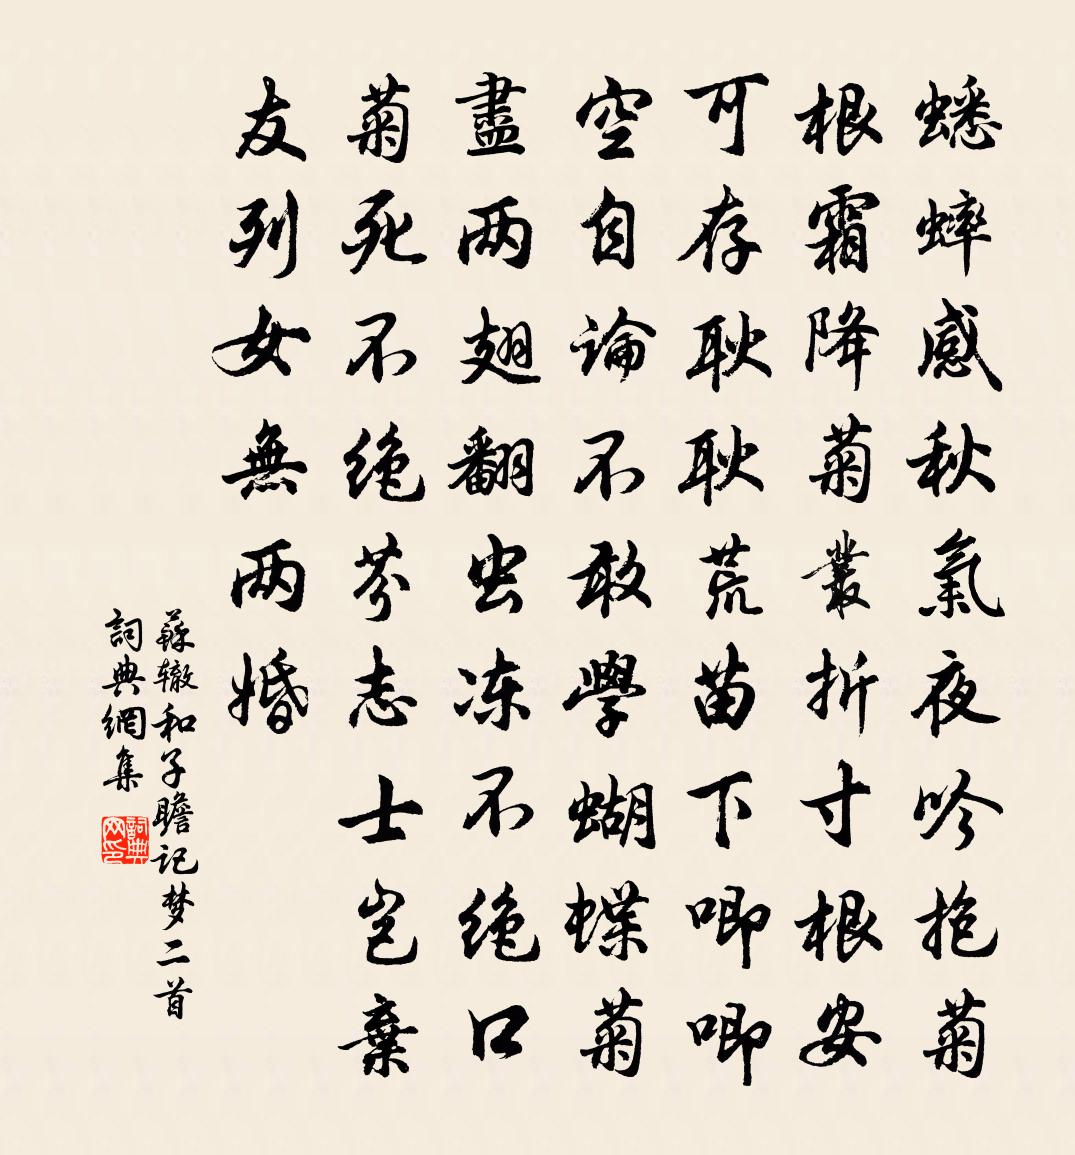 蟋蟀感秋氣夜吟抱菊
根霜降菊叢折寸根安
可存耿耿荒苗下唧唧
空自論不敢學蝴蝶菊
盡两翅翻虫冻不绝口
菊死不绝芬志士岂棄
友列女無两婚
蘇辙和子瞻记梦二首
詞典網集
詞典网印